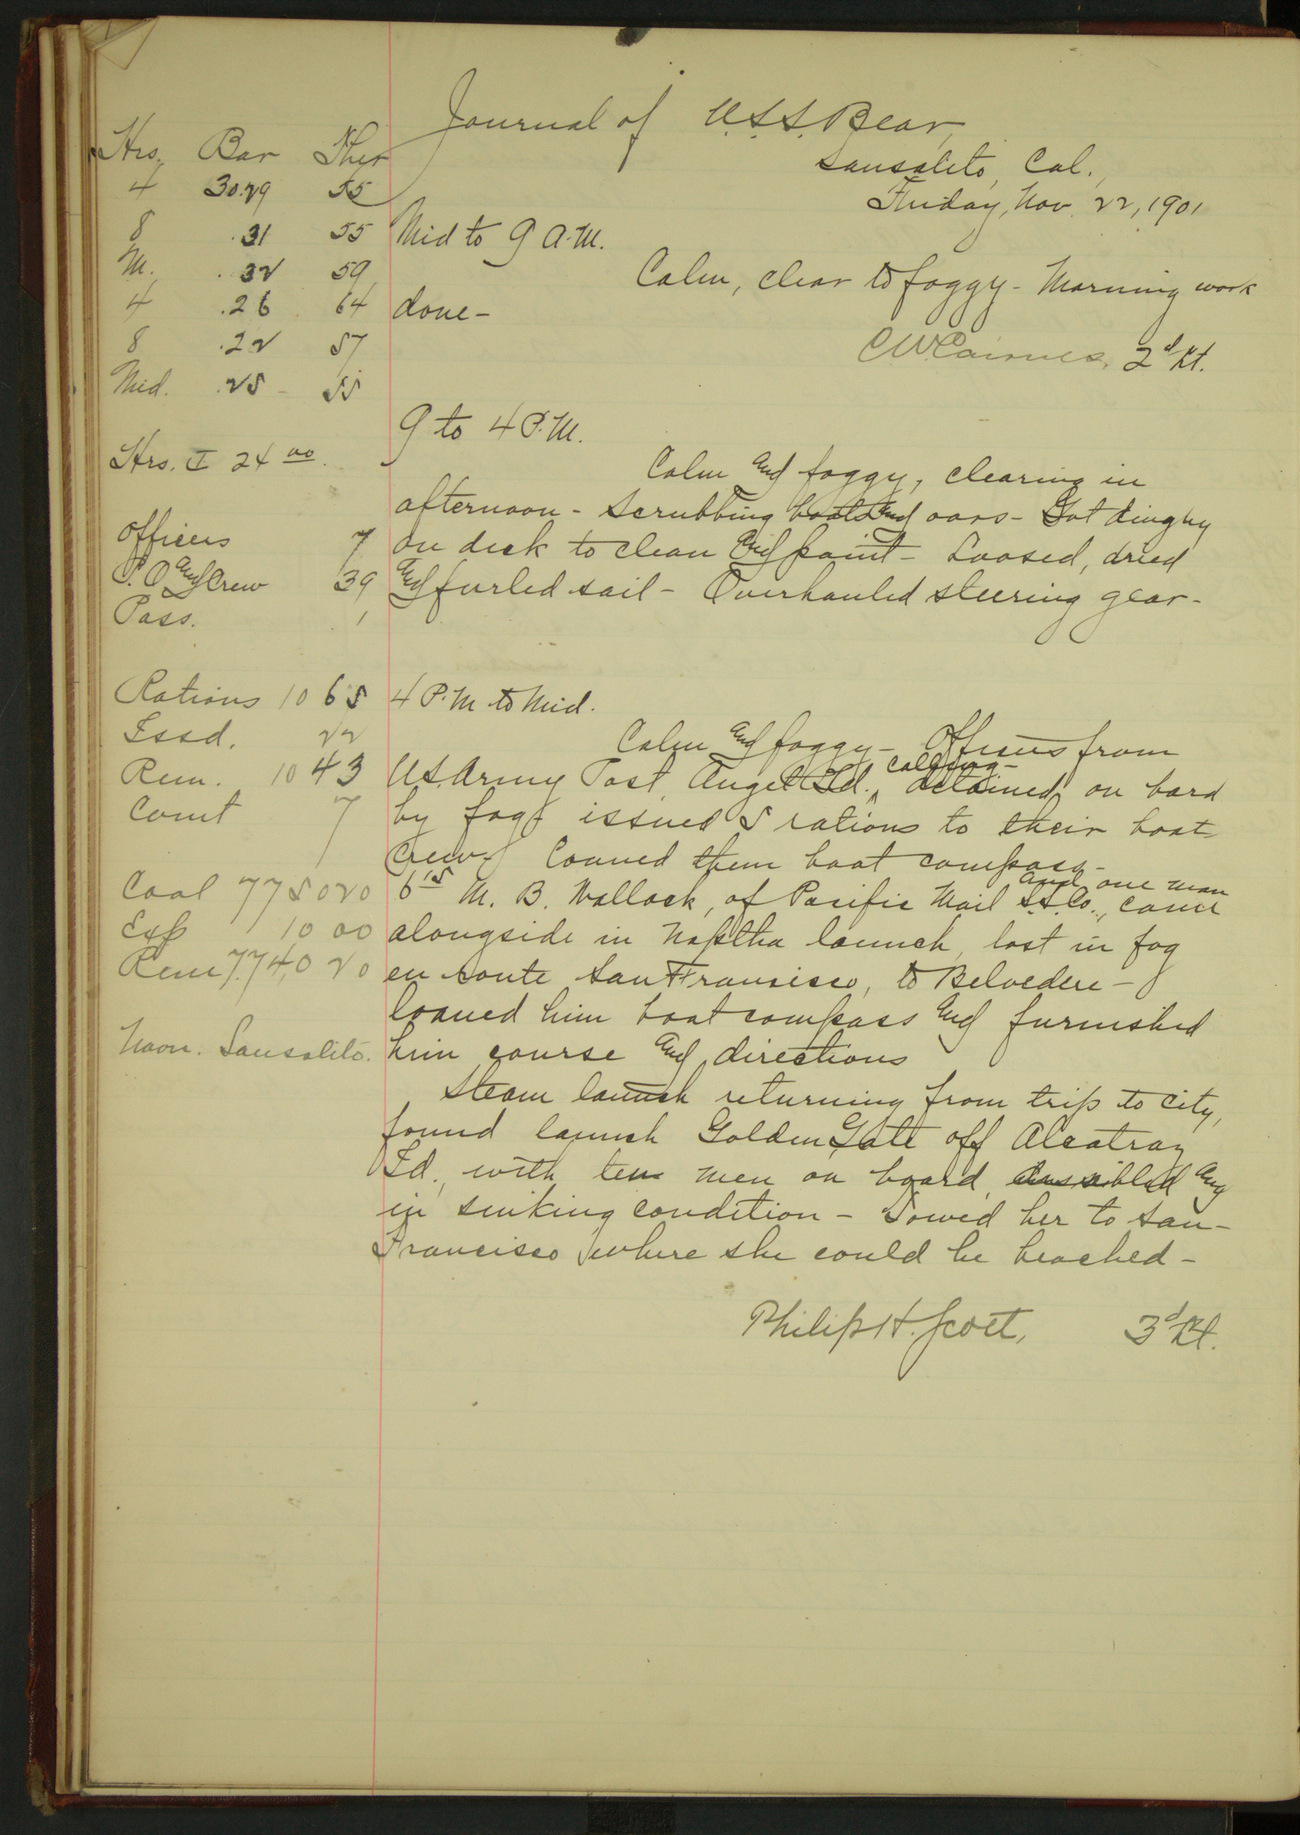 Journal of U.S.S. Bear,
Sausalito, Cal.,
Friday, Nov. 22, 1901
Hrs. Bar Ther
4 30.29 55
8 .31 55
M. .32 59
4 .26 64
8 .22 57
Mid. .25 - 55
Hrs. I 24 00.
Officers 7
P.O. and Crew 39
Pass. 1
Rations 1065
Issd. 22
Rem. 1043
Comt 7
Coal 775020
Exp 1000
Rem 774020
Noon. Sausalito.
Mid to 9 A.M.
Calm, clear to foggy - Morning work
done -
C.W. Cairnes, 2d Lt.
9 to 4 P.M.
Calm and foggy, clearing in
afternoon - Scrubbing boats and oars - Got dinghy
on deck to clean and paint - Loosed, dried
and furled sail - Overhauled steering gear -
4 P.M to Mid.
Calm and foggy - Officers from
U.S. Army Post, Angel Id., calling - detained on bord
by fog issued 5 rations to their boat
crew. Loaned them boat compass -
6 15 M. B. Wallack, of Pacific Mail S.S. Co., and one man came
alongside in Naptha launch, lost in fog
en route San Francisco, to Belvedere -
loaned him boat compass and furnished
him course and directions
Steam launch returning from trip to city,
found launch Golden Gate off Alcatraz
Id., with ten men on board, and
in sinking condition - Towed her to San-
Francisco where she could be beached -
Philip H. Scott, 3d Lt.